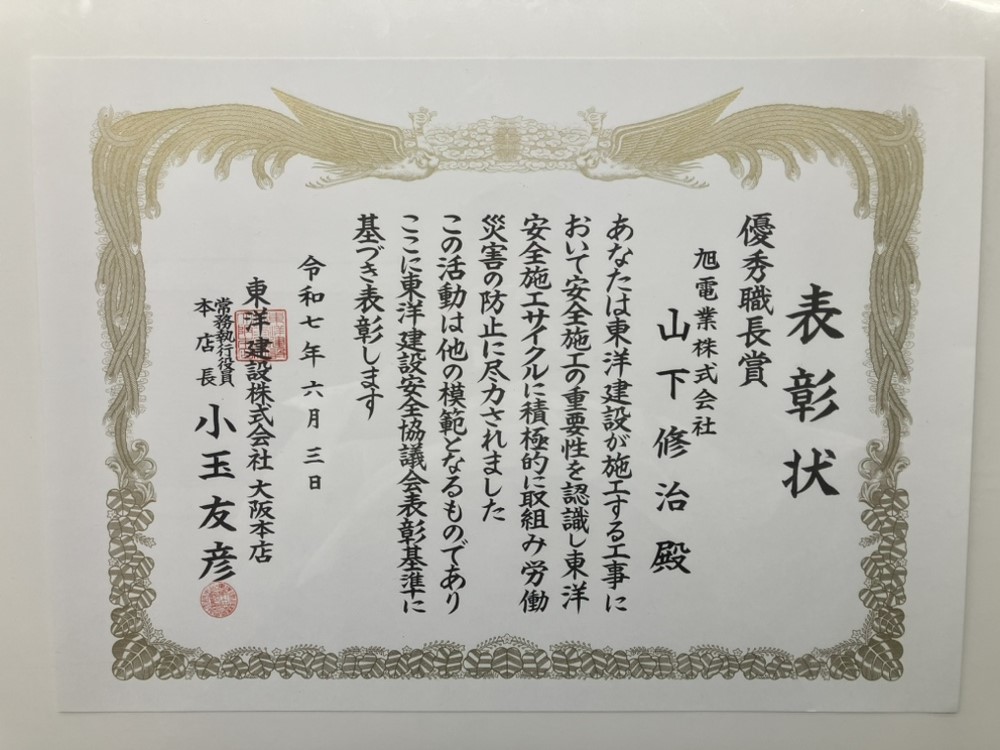 表彰状
優秀職長賞
旭電業株式会社
山下修治殿
あなたは東洋建設が施工する工事に
おいて安全施工の重要性を認識し東洋
安全施工サイクルに積極的に取組み労働
災害の防止に尽力されました
この活動は他の模範となるものであり
ここに東洋建設安全協議会表彰基準に
基づき表彰します
令和七年六月三日
東洋建設株式会社 大阪本店
常務執行役員
本店長
小玉友彦